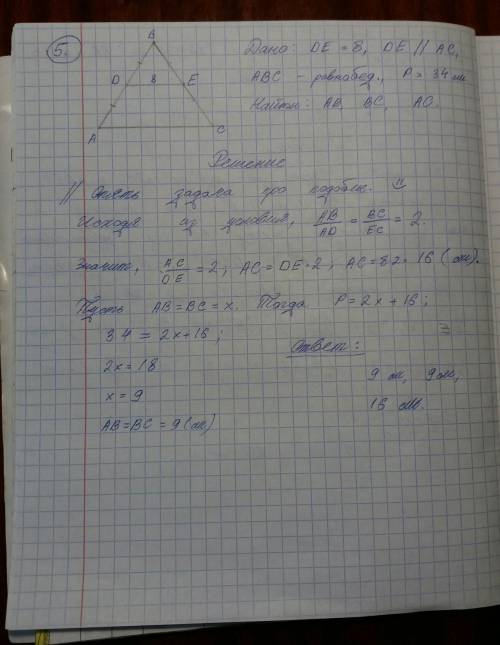 5.
B
Дано: DE = 8, DE // AC,
D 8 E
ABC - равнобед., P = 34 см
Найти: AB, BC, AC.
A C
Решение
// Опять задача про подобие.
Исходя из условия, AB/AD = BC/EC = 2.
Значит, AC/DE = 2; AC = DE·2; AC = 8·2 = 16 (см).
Пусть AB = BC = x. Тогда P = 2x + 16;
34 = 2x + 16;
2x = 18
x = 9
AB = BC = 9 (см)
Ответ:
9 см, 9 см,
16 см.